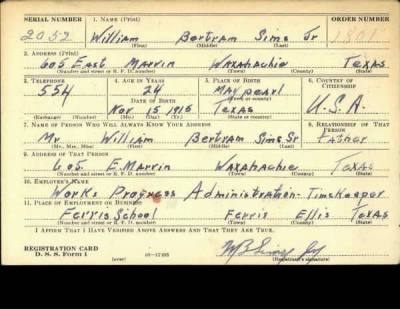 SERIAL NUMBER 1. NAME (Print) ORDER NUMBER
2052 William Bertram Sims Jr 1801
(First) (Middle) (Last)
2. ADDRESS (Print)
605 East Marvin Waxahachie Texas
(Number and street or R. F. D. number) (Town) (County) (State)
3. TELEPHONE 4. AGE IN YEARS 5. PLACE OF BIRTH 6. COUNTRY OF CITIZENSHIP
554 24 Maypearl U.S.A.
DATE OF BIRTH (Town or county)
Nov. 15 1915 Texas
(Exchange) (Number) (Mo.) (Day) (Yr.) (State or country)
7. NAME OF PERSON WHO WILL ALWAYS KNOW YOUR ADDRESS 8. RELATIONSHIP OF THAT PERSON
Mr William Bertram Sims Sr Father
(Mr., Mrs., Miss) (First) (Middle) (Last)
9. ADDRESS OF THAT PERSON
605 E. Marvin Waxahachie Texas
(Number and street or R. F. D. number) (Town) (County) (State)
10. EMPLOYER'S NAME
Works Progress Administration - Timekeeper
11. PLACE OF EMPLOYMENT OR BUSINESS
Ferris School Ferris Ellis Texas
(Number and street or R. F. D. number) (Town) (County) (State)
I AFFIRM THAT I HAVE VERIFIED ABOVE ANSWERS AND THAT THEY ARE TRUE.
REGISTRATION CARD
D. S. S. Form 1 (over) W B Sims Jr
(Registrant's signature)